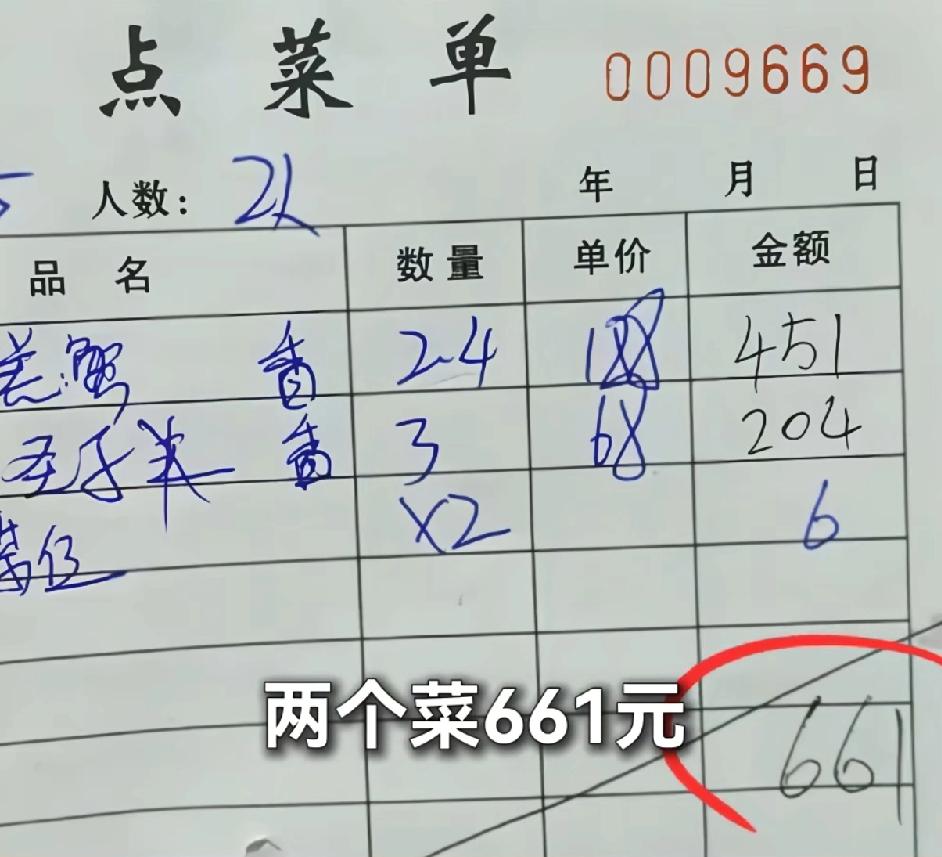 点菜单 0009669
人数: 2人 年 月 日
品名 数量 单价 金额
羔蟹 香 2.4 188 451
香 3 68 204
茶位 x2 6
两个菜661元
661